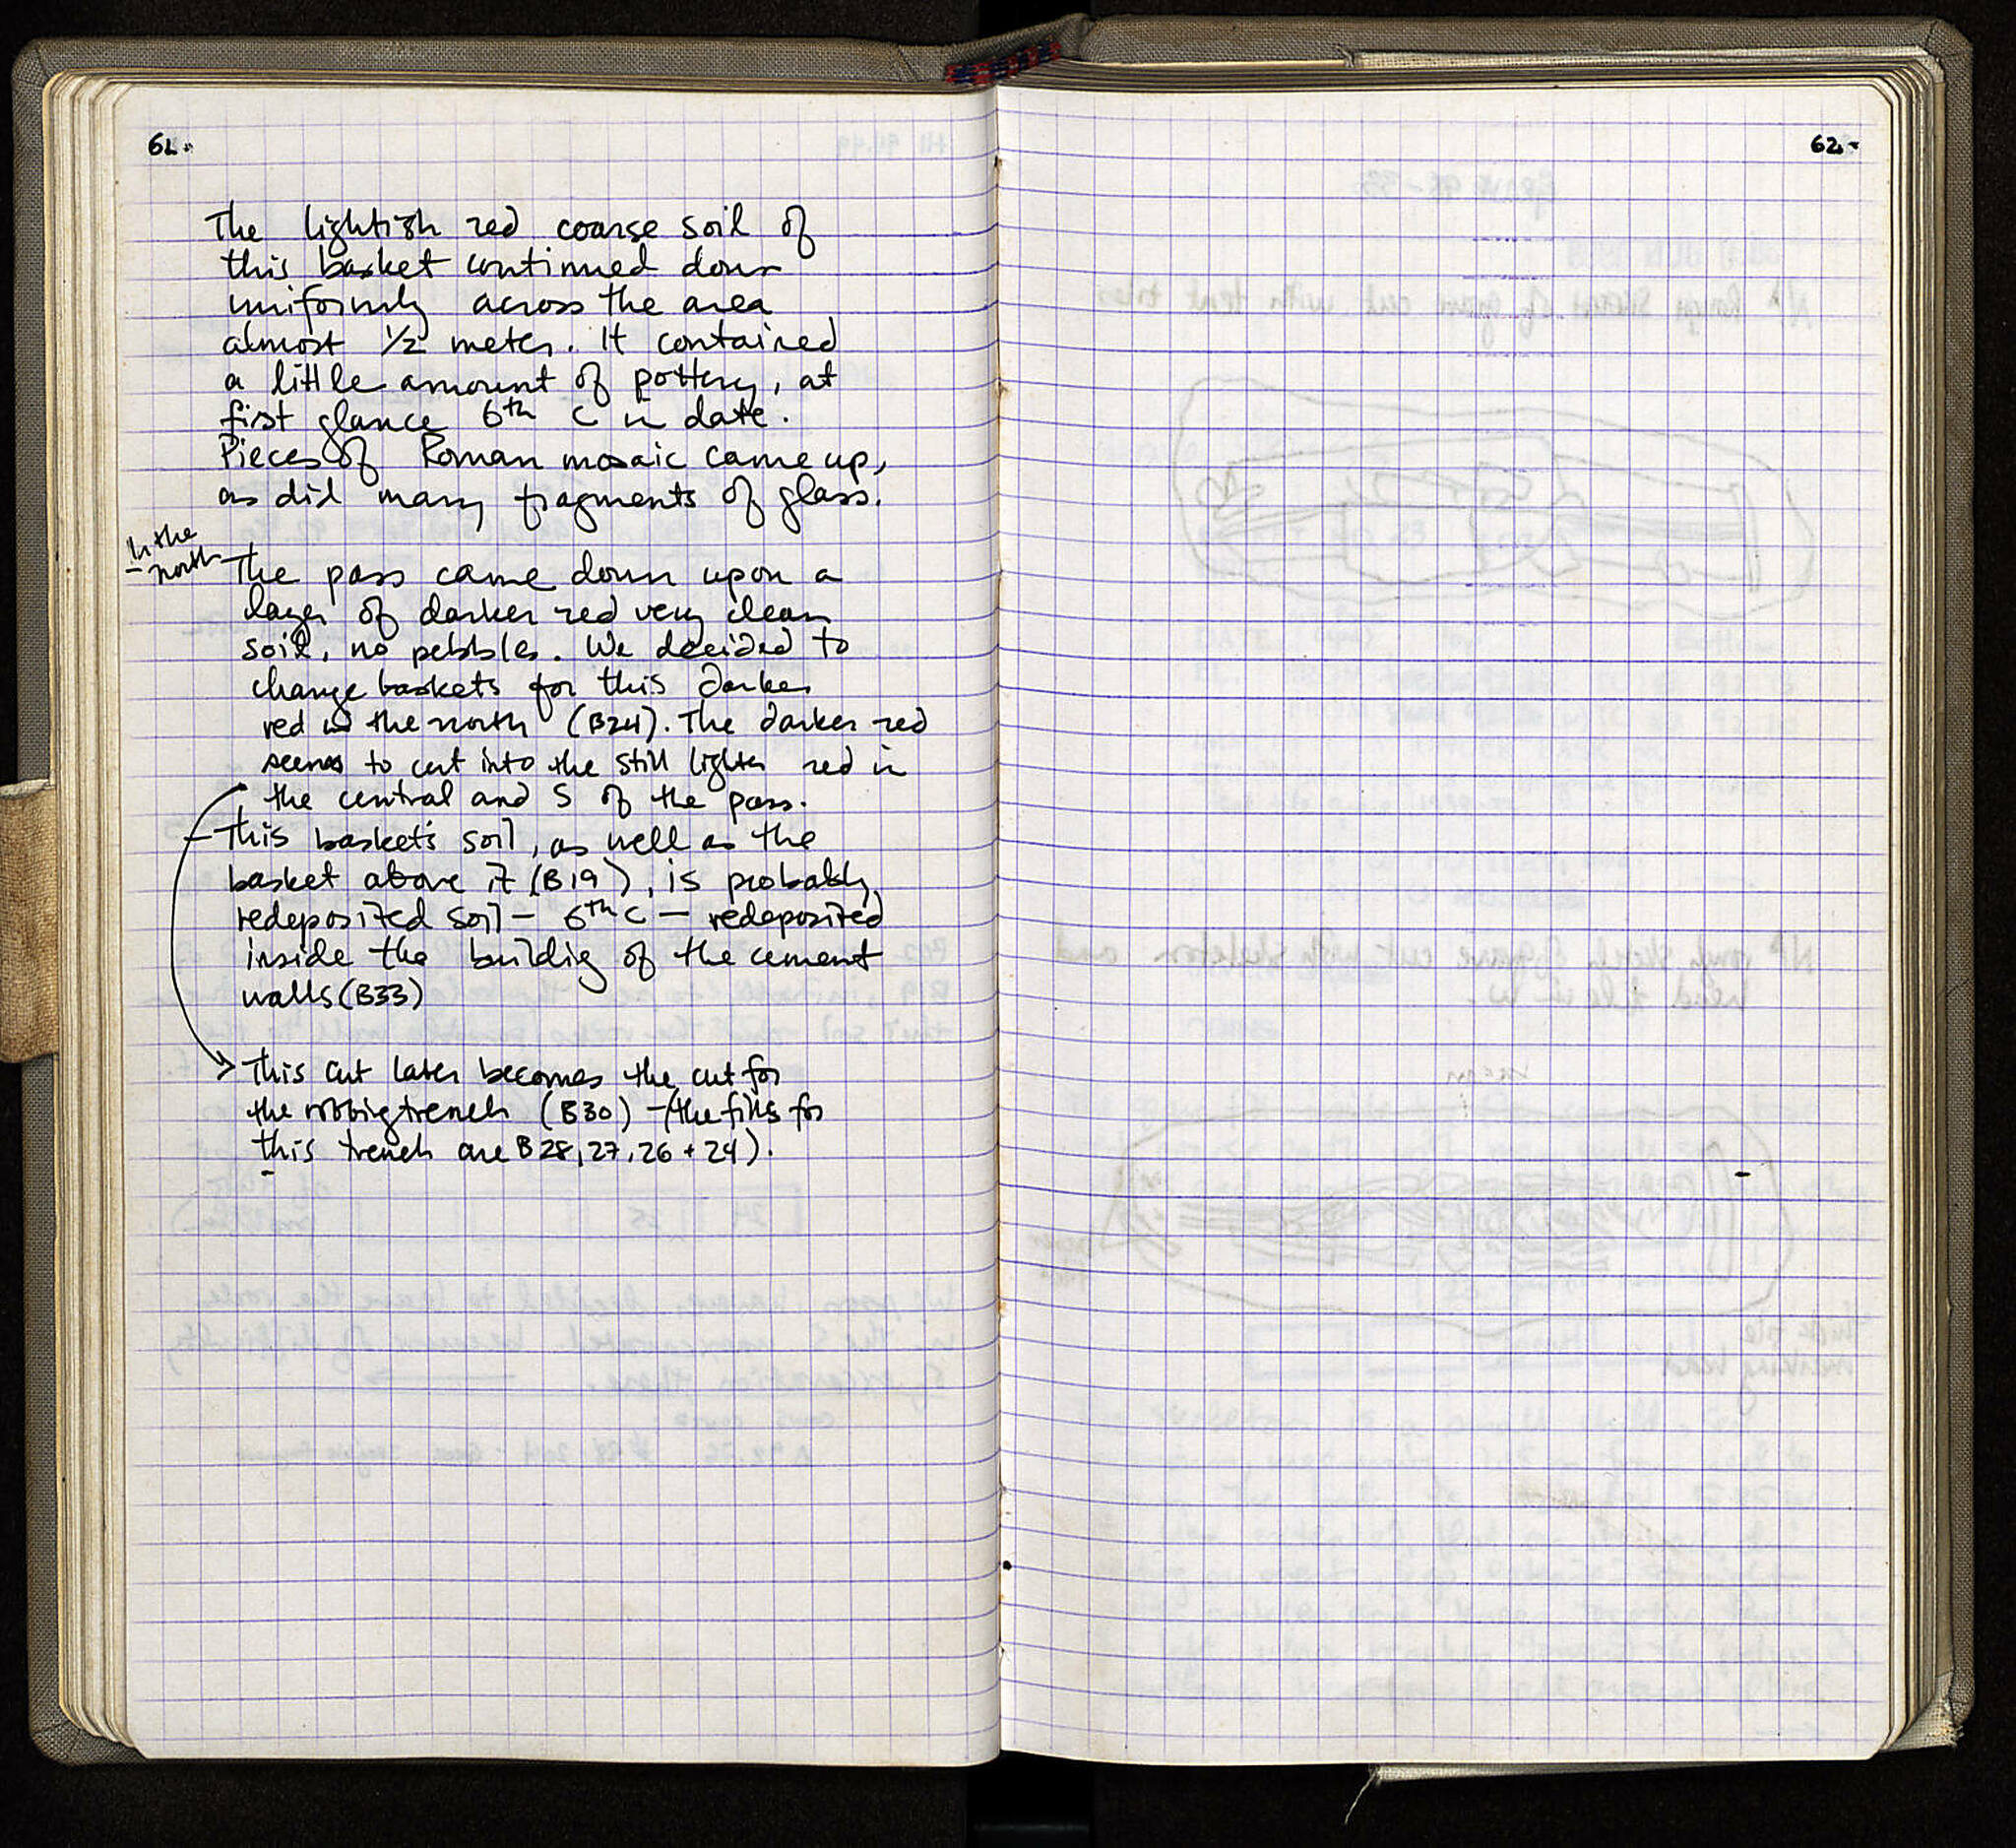 61.
The lightish red coarse soil of
this basket continued down
uniformly across the area
almost 1/2 meter. It contained
a little amount of pottery, at
first glance 6th C in date.
Pieces of Roman mosaic came up,
as did many fragments of glass.
In the
north
The pass came down upon a
layer of darker red very clean
soil, no pebbles. We decided to
change baskets for this darker
red in the north (B24). The darker red
seems to cut into the still lighter red in
the central and S of the pass.
- This basket's soil, as well as the
basket above it (B19), is probably
redeposited soil - 6th C - redeposited
inside the buildig of the cement
walls (B33)
→ This cut later becomes the cut for
the robbig trench (B30) - (the fills for
this trench are B28, 27, 26 + 24).
62.